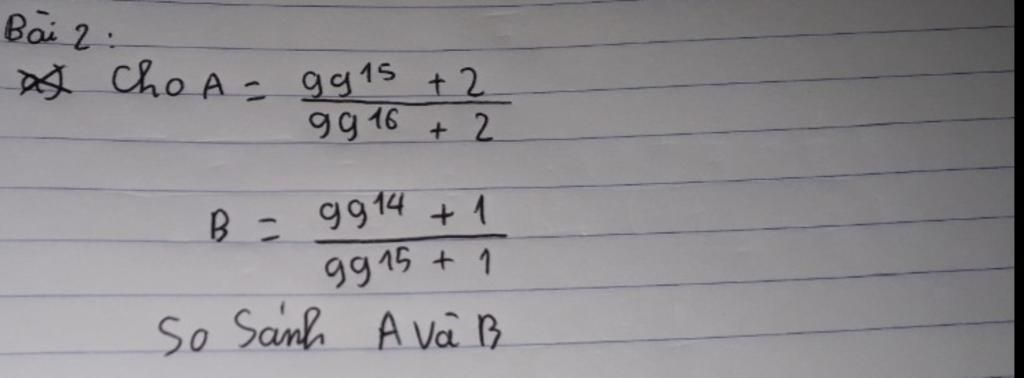 Bài 2:
Cho A = \frac{99^{15} + 2}{99^{16} + 2}
B = \frac{99^{14} + 1}{99^{15} + 1}
So Sánh A Và B